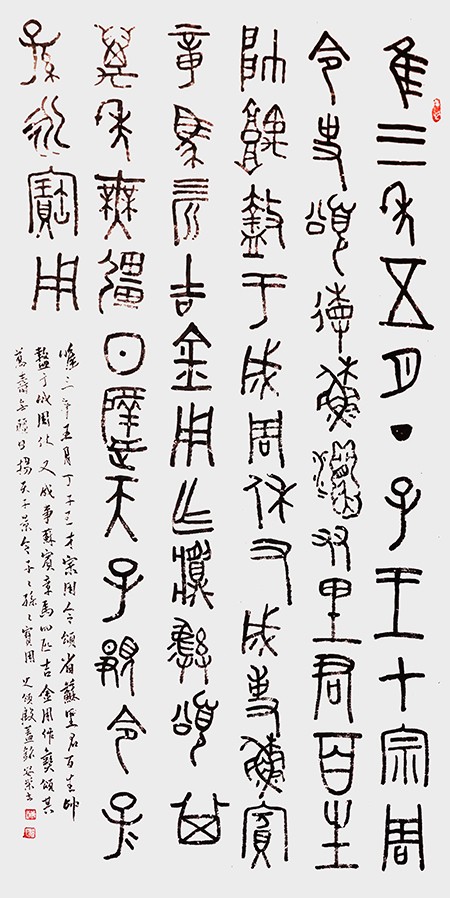 隹三年五月丁子王才宗周
令史頌省蘇姻友里君百生
帥堣盩于成周休又成事蘇賓
章馬四匹吉金用乍彝頌其
萬年無疆日揚天子顯令子=
孫=永寶用
惟三年五月丁子王才宗周令頌省蘇里君百生帥
盩于成周休又成事蘇賓章馬四匹吉金用作彝頌其
萬壽無疆日揚天子景令子々孫々寶用 史頌𣪘蓋銘